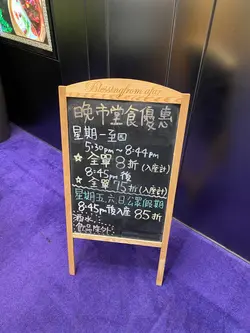 Blessing from afar
晚市堂食優惠
星期一至四
5:30pm～8:44pm
☆ 全單8折(入座計)
8:45pm後
☆ 全單75折(入座計)
星期五六日公眾假期
8:45pm後入座85折
酒水
食品除外